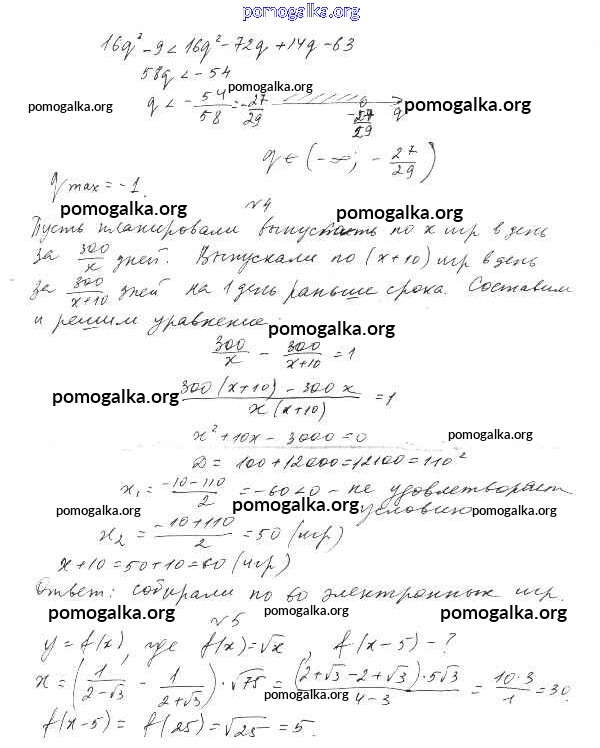 pomogalka.org
16q² - 9 < 16q² - 72q + 14q - 63
58q < -54
pomogalka.org
q < - 54/58 = - 27/29
-27/29 q
pomogalka.org pomogalka.org
q ∈ (-∞; - 27/29)
q max = -1.
pomogalka.org pomogalka.org
№4
Пусть планировали выпускать по x игр в день
за 300/x дней. Выпускали по (x+10) игр в день
за 300/x+10 дней на 1 день раньше срока. Составим
и решим уравнение:
pomogalka.org
300/x - 300/x+10 = 1
pomogalka.org
300(x+10) - 300x / x(x+10) = 1
x² + 10x - 3000 = 0
pomogalka.org
D = 100 + 12000 = 12100 = 110²
x₁ = -10-110/2 = -60 < 0 - не удовлетворяет
условию
pomogalka.org pomogalka.org pomogalka.org
x₂ = -10+110/2 = 50 (игр)
x+10 = 50+10 = 60 (игр)
pomogalka.org
Ответ: собирали по 60 электронных игр.
pomogalka.org pomogalka.org pomogalka.org
№5
y = f(x), где f(x) = √x, f(x-5) - ?
x = (1/2-√3 - 1/2+√3) · √75 = (2+√3-2+√3)·5√3 / 4-3 = 10·3/1 = 30.
pomogalka.org
f(x-5) = f(25) = √25 = 5.